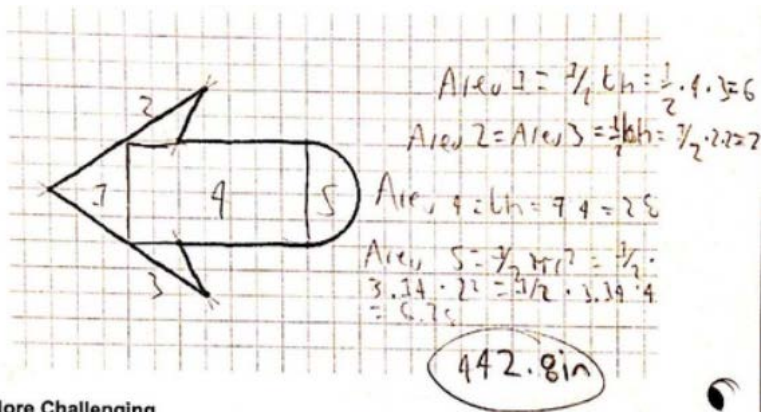 2
Area 1 = 1/2 bh = 1/2 · 4 · 3 = 6
Area 2 = Area 3 = 1/2 bh = 1/2 · 2 · 2 = 2
1
4
5
Area 4 = bh = 7 4 = 28
Area 5 = 1/2 πr² = 1/2 ·
3.14 · 2² = 1/2 · 3.14 · 4
3
442.8in
More Challenging